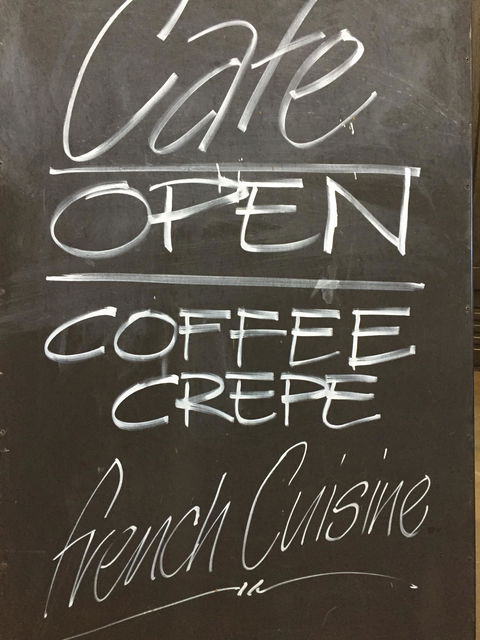 Cafe
OPEN
COFFEE
CREPE
french Cuisine